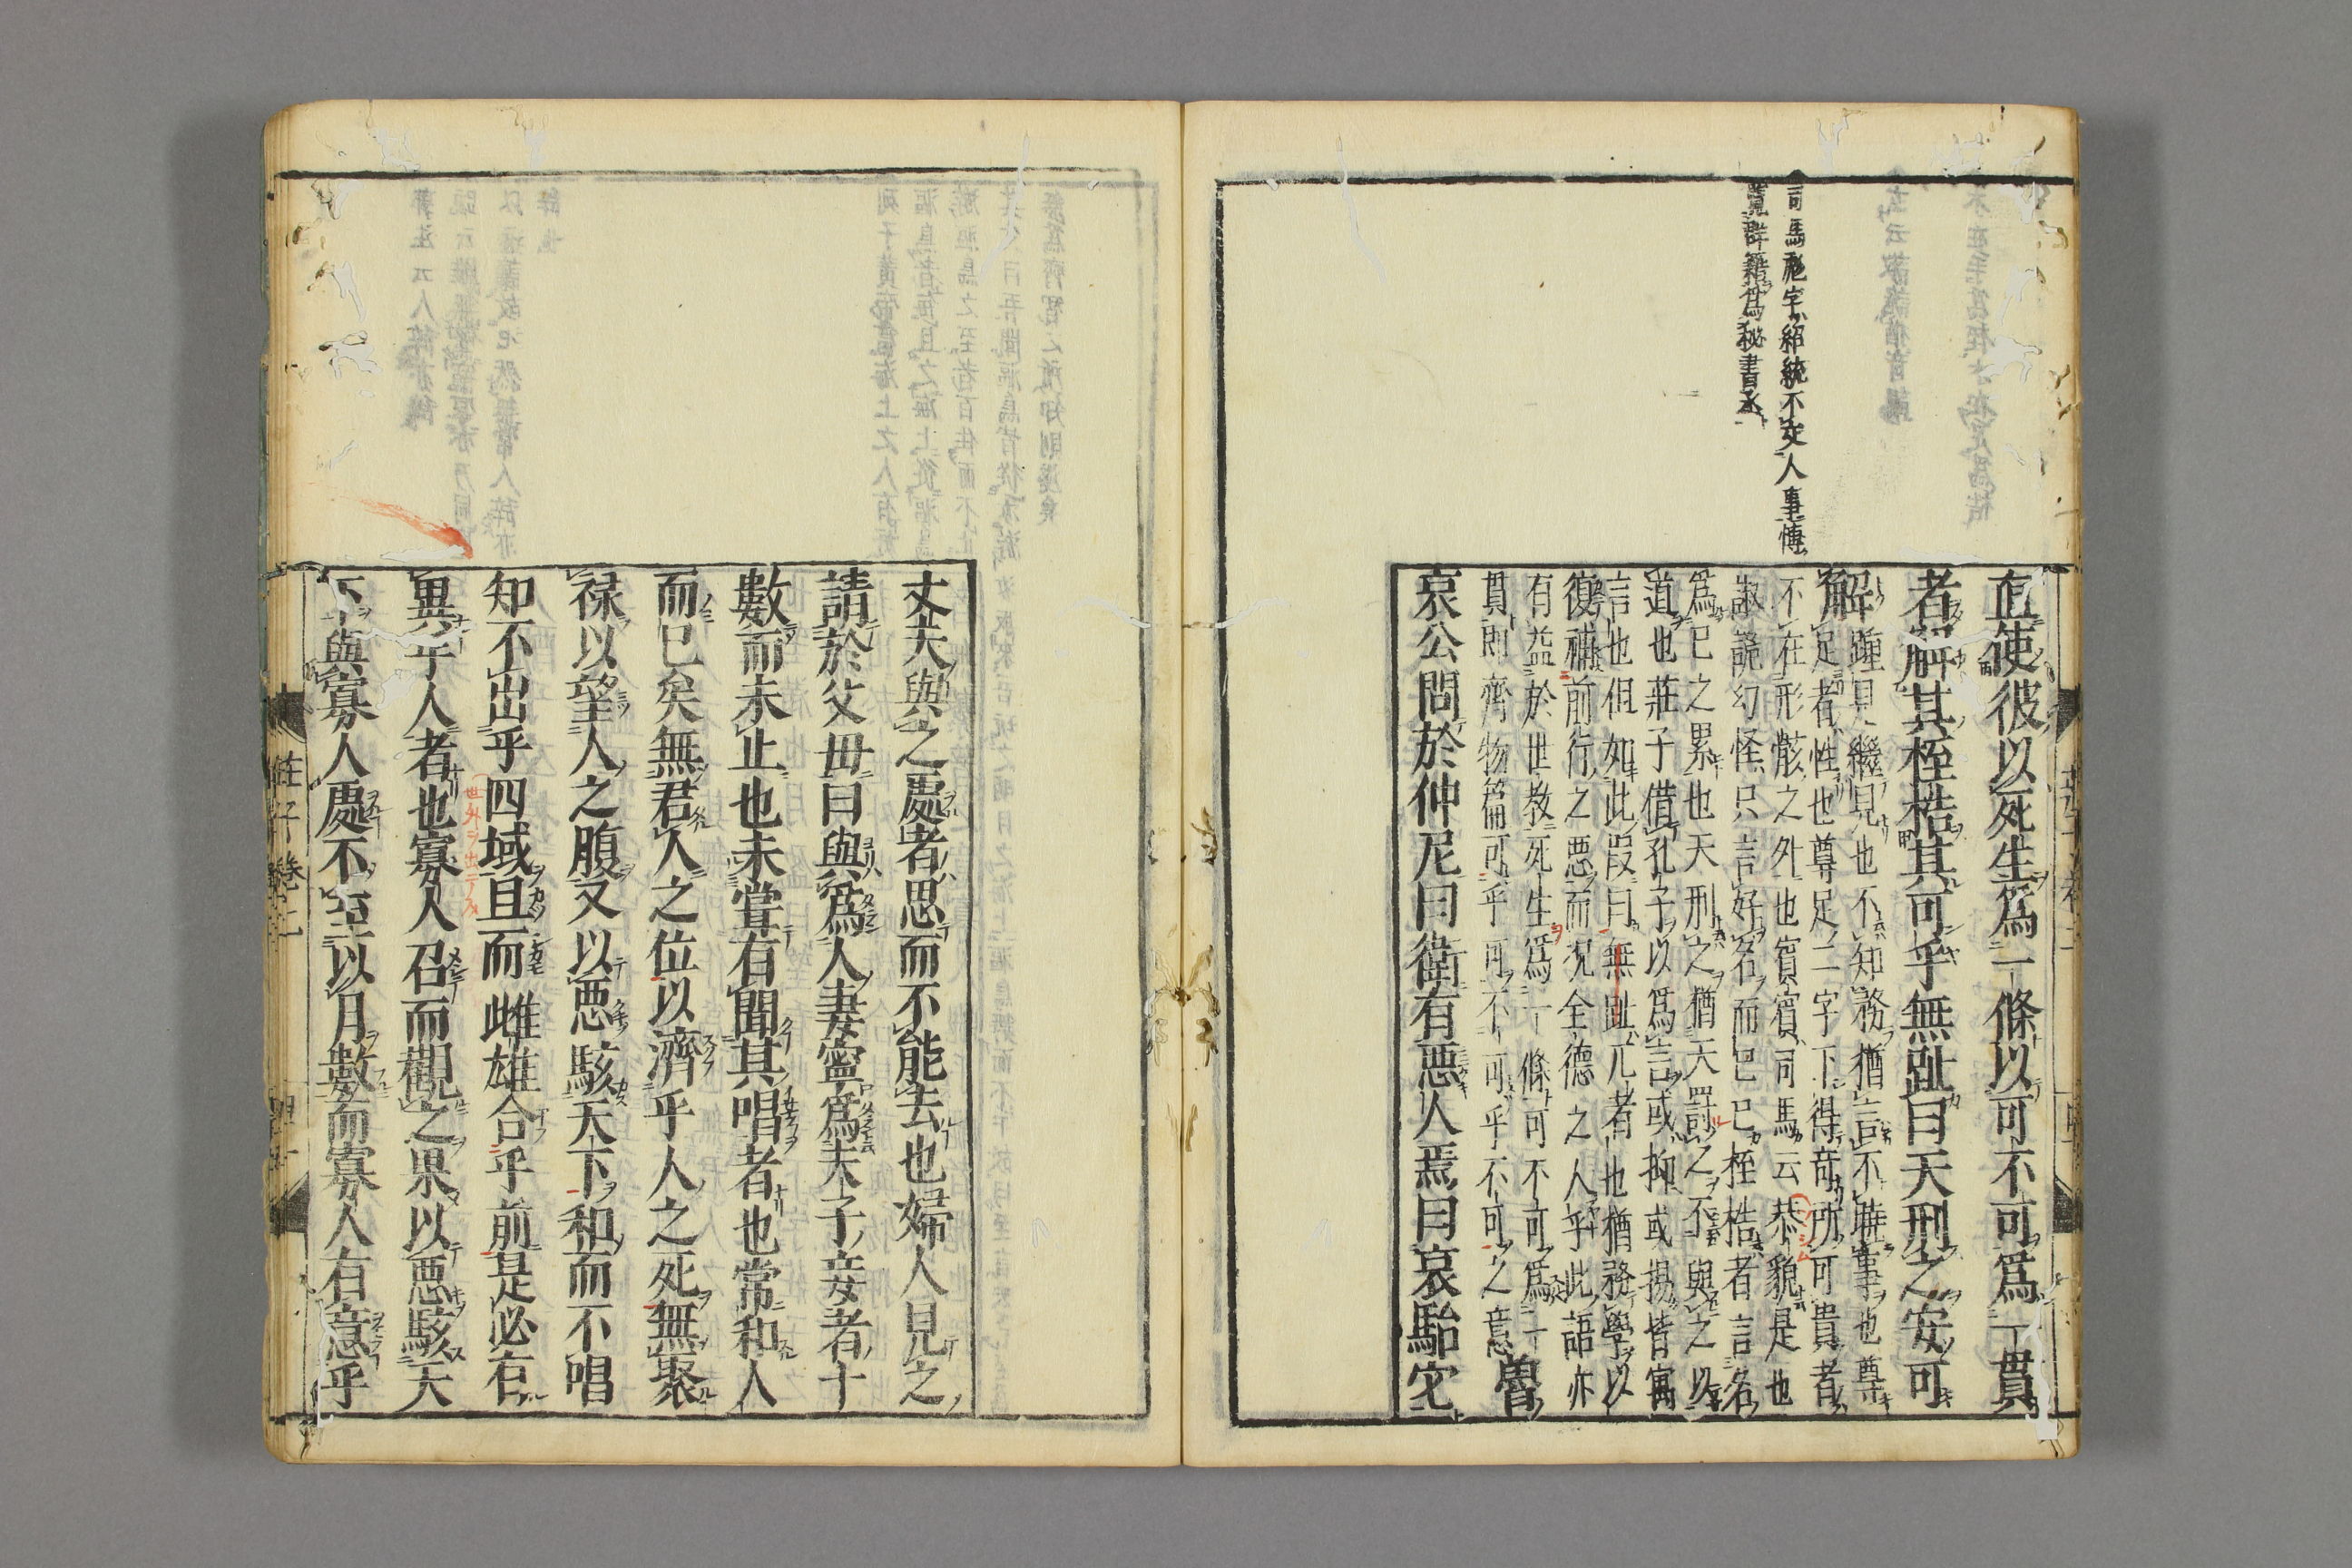 司馬彪字紹統不交人事博
覽群籍爲秘書丞
直使彼以死生爲一條以可不可爲一貫
者解其桎梏其可乎無趾曰天刑之安可
解
踵見繼見也不知務猶言不曉事也尊
足者性也尊足二字下得奇所可貴者
不在形骸之外也賓賓司馬云恭貌是也
諔詭幻怪只言好名而已已桎梏者言名
爲已之累也天刑之猶天罰之不與之以
道也莊子借孔子以爲言或抑或揚皆寓
言也但如此段曰無趾兀者也猶務學以
復補前行之惡而况全德之人乎此語亦
有益於世教死生爲一條可不可爲一
貫則齊物篇可乎可不可乎不可之意
魯
哀公問於仲尼曰衛有惡人焉曰哀駘它
丈夫與之處者思而不能去也婦人見之
請於父毋曰與爲人妻寧爲夫子妾者十
數而未止也未嘗有聞其唱者也常和人
而已矣無君人之位以濟乎人之死無聚
禄以望人之腹又以惡駭天下和而不唱
知不出乎四域且而雌雄合乎前是必有
異乎人者也寡人召而觀之果以惡駭天
下與寡人處不至以月數而寡人有意乎
莊子卷二